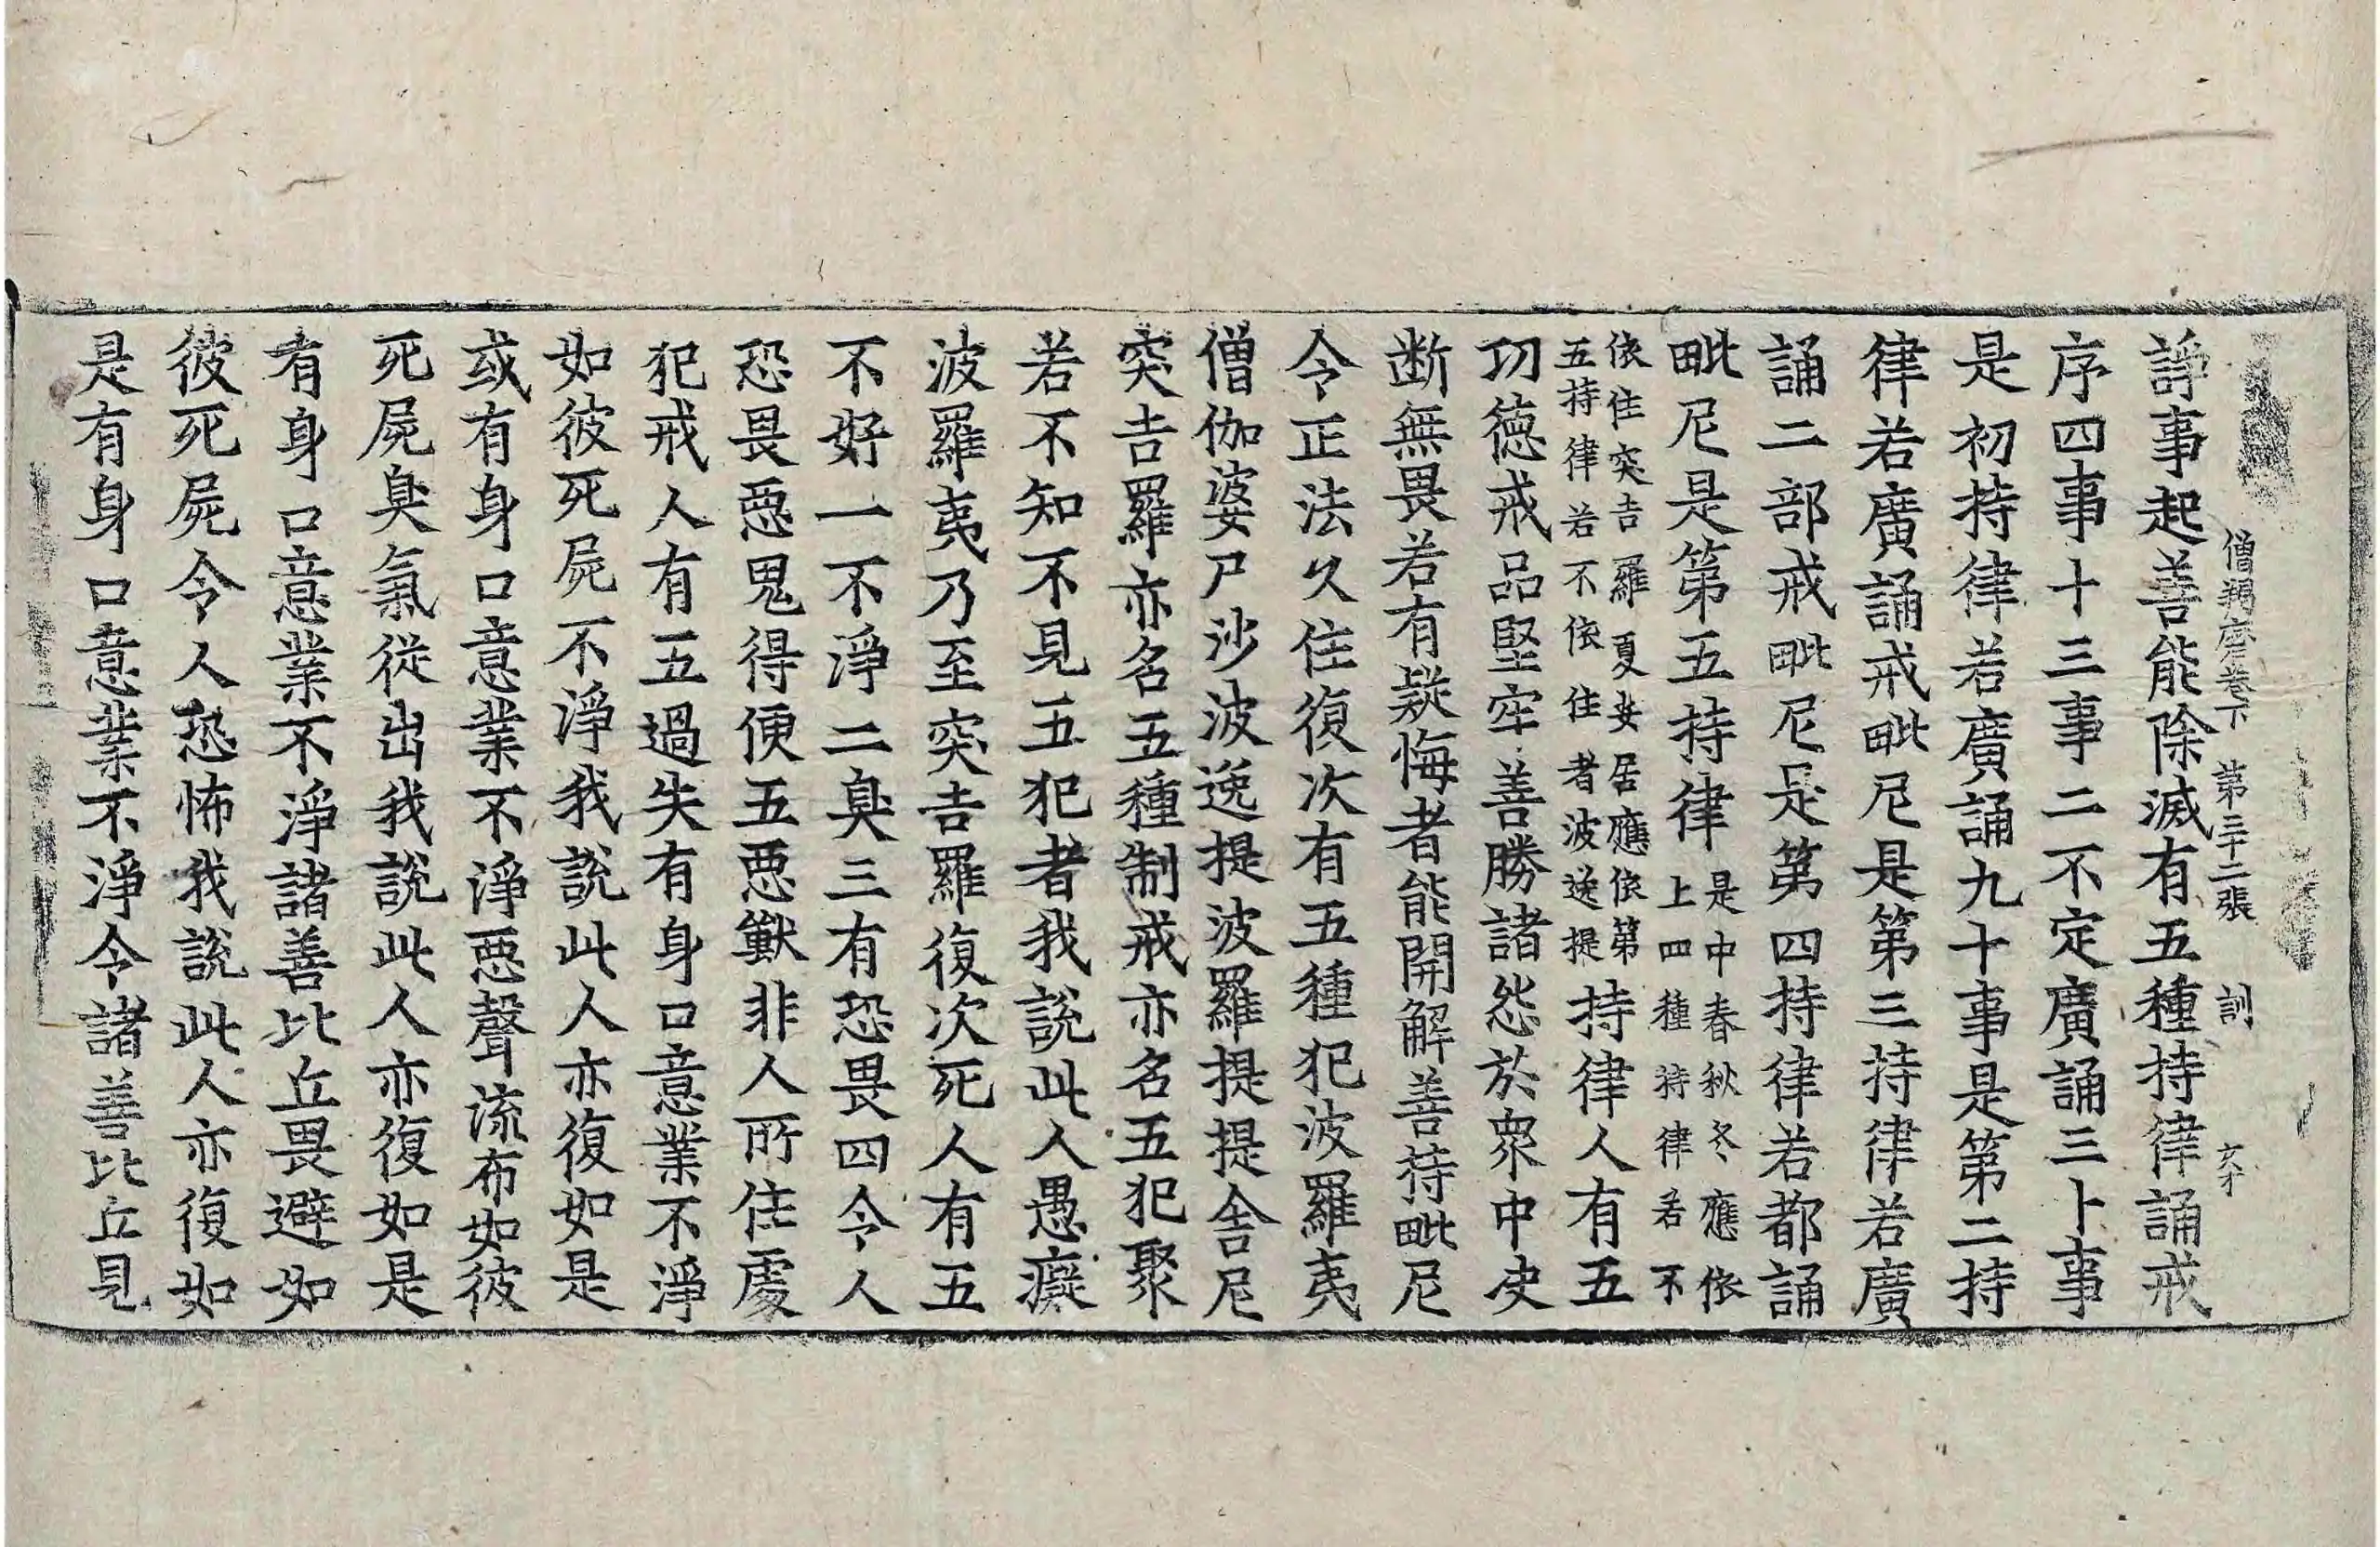 僧羯磨卷下 第三十二張 訓
諍事起善能除滅有五種持律誦戒
序四事十三事二不定廣誦三十事
是初持律若廣誦九十事是第二持
律若廣誦戒毗尼是第三持律若廣
誦二部戒毗尼是第四持律若都誦
毗尼是第五持律是中春秋冬應依
上四種持律若不
依住突吉羅夏安居應依第
五持律若不依住者波逸提持律人有五
功德戒品堅牢善勝諸怨於衆中决
断無畏若有疑悔者能開解善持毗尼
令正法久住復次有五種犯波羅夷
僧伽婆尸沙波逸提波羅提提舍尼
突吉羅亦名五種制戒亦名五犯聚
若不知不見五犯者我説此人愚癡
波羅夷乃至突吉羅復次死人有五
不好一不淨二臭三有恐畏四令人
恐畏惡鬼得便五惡獸非人所住處
犯戒人有五過失有身口意業不淨
如彼死屍不淨我説此人亦復如是
或有身口意業不淨惡聲流布如彼
死屍臭氣從出我説此人亦復如是
有身口意業不淨諸善比丘畏避如
彼死屍令人恐怖我説此人亦復如
是有身口意業不淨令諸善比丘見